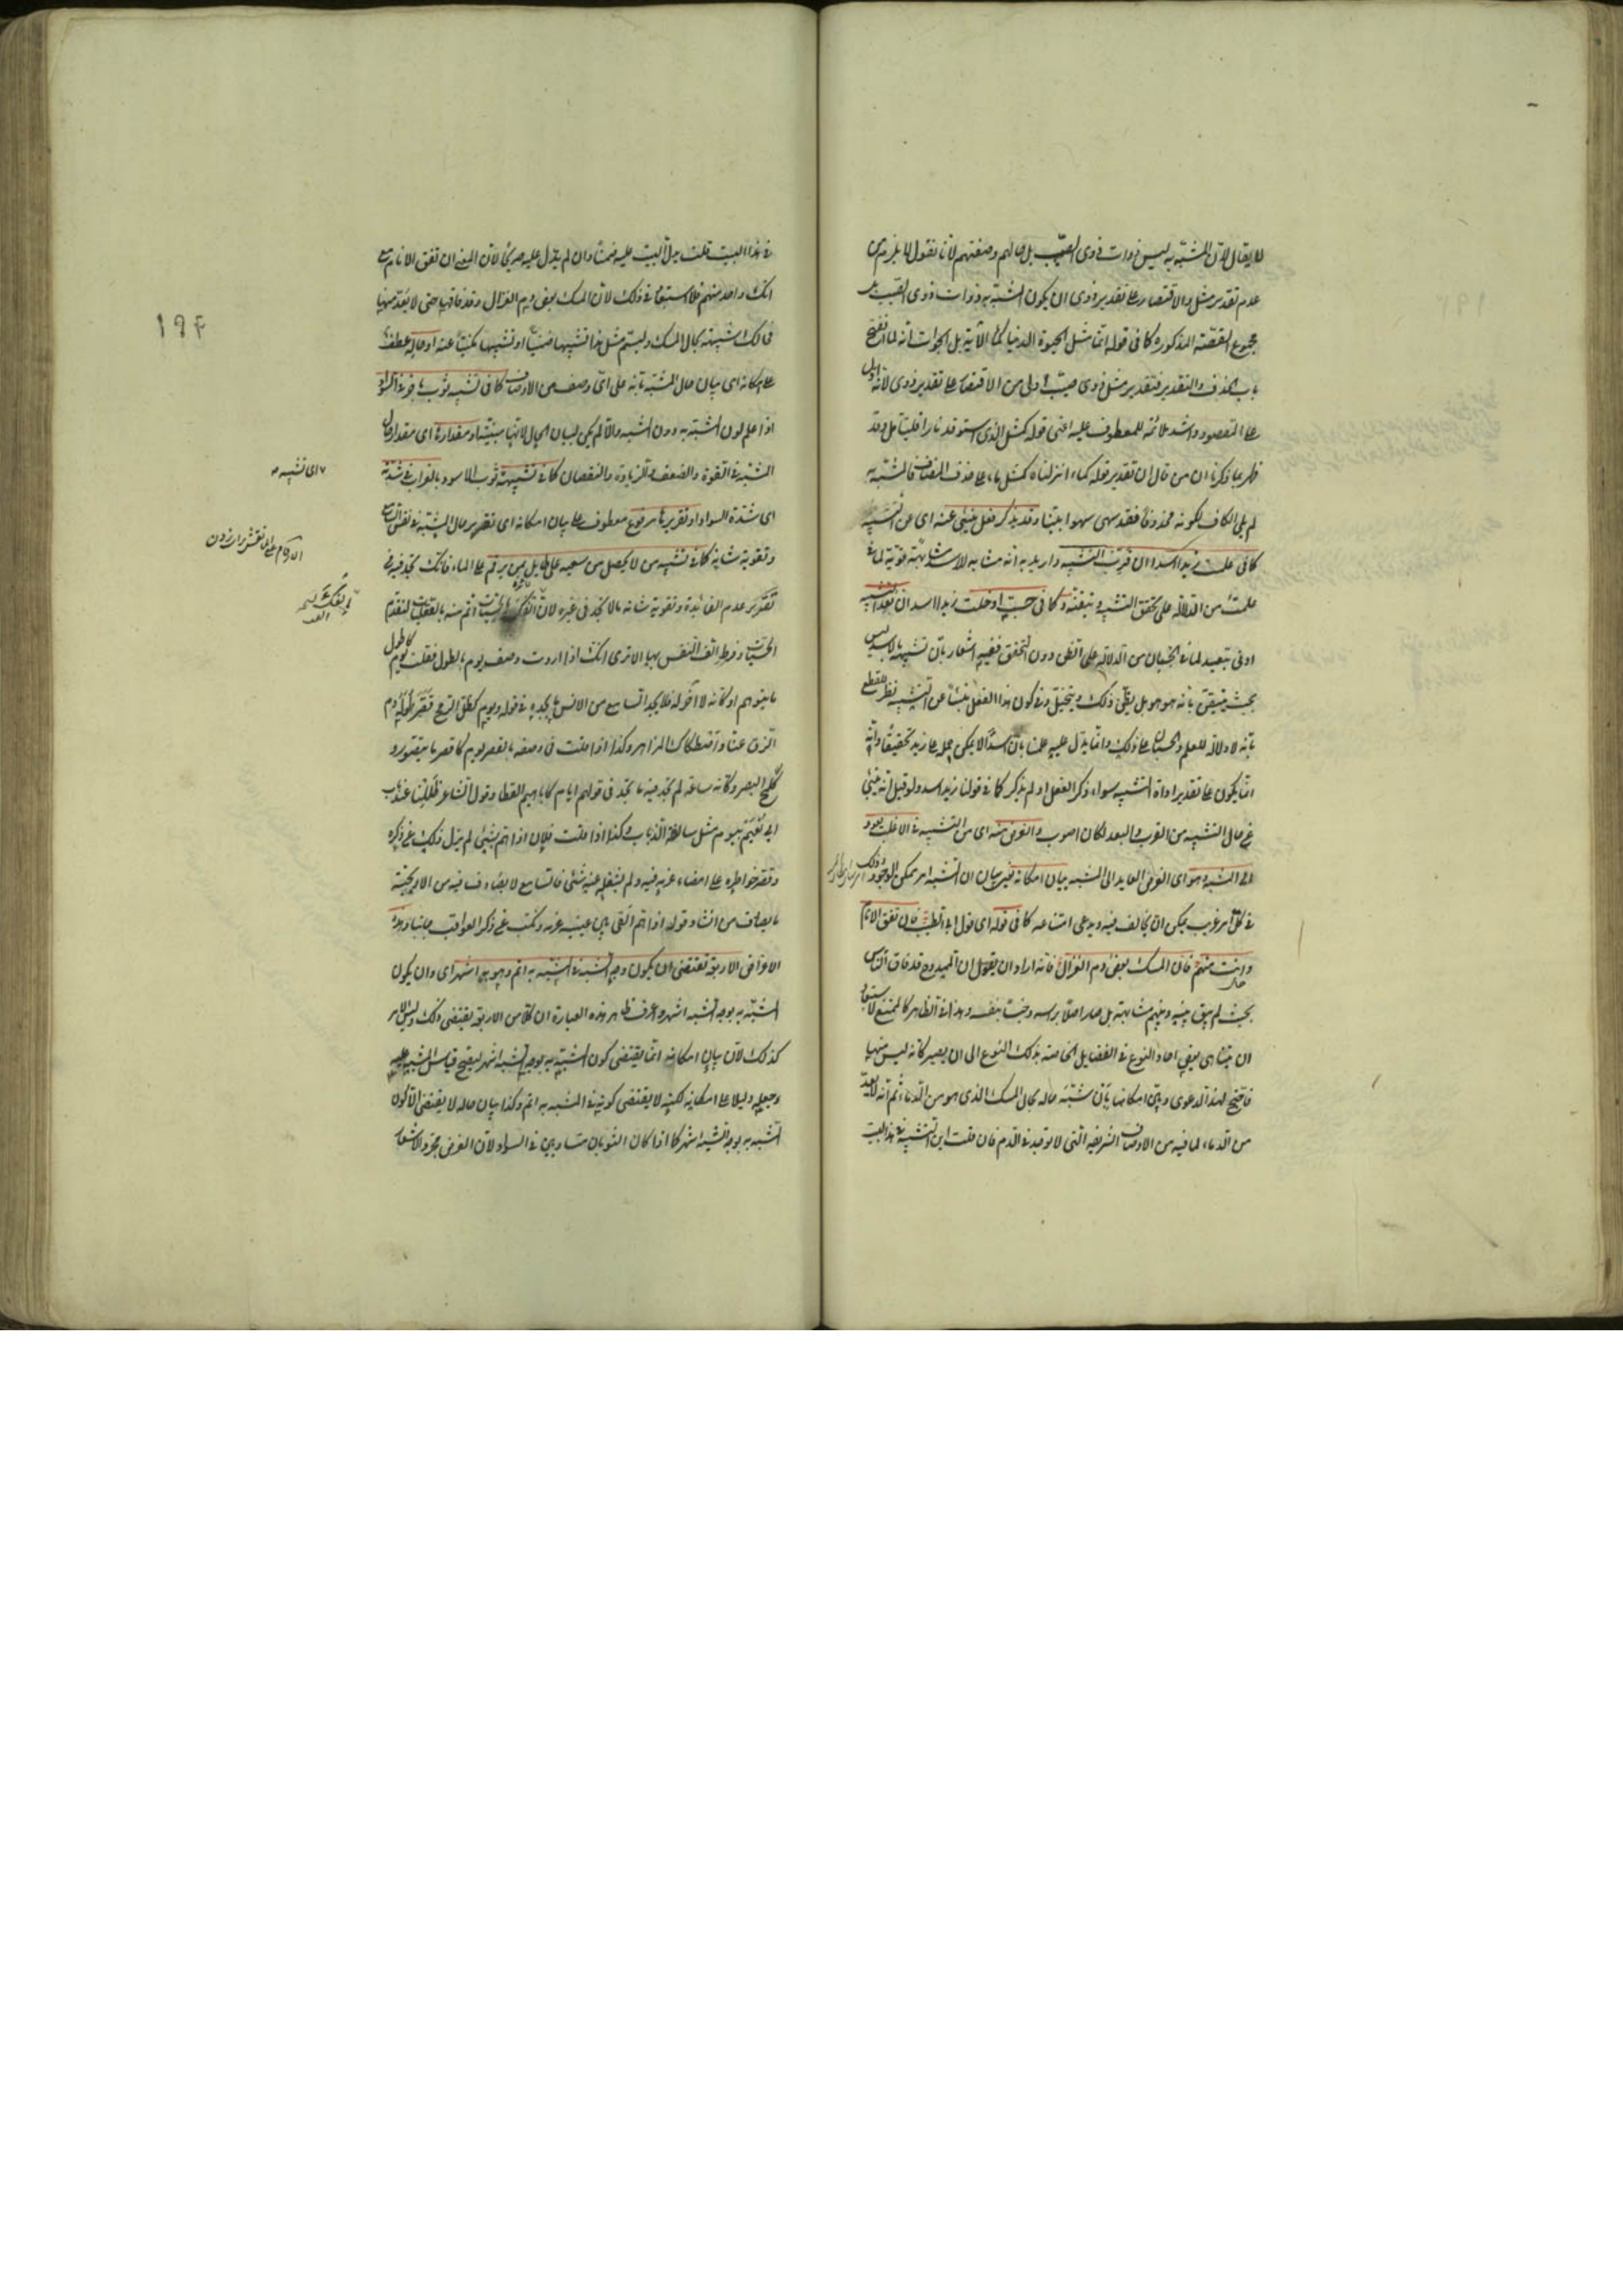 لا يقال لان المشبه به ليس ذوات ذوى الصيب بل حالهم وصفتهم لأنا نقول لا يلزم من
عدم تقدير مثل والاقتصار على تقدير ذوى ان يكون المشبه به ذوات ذوى الصيب بل
مجموع القصة المذكورة كما فى قوله انما مثل الحيوة الدنيا كماء الآية بل الجواب انه لما انفتح
باب الحذف والتقدير فتقدير مثل ذوى صيب اولى من الاقتصار على تقدير ذوى لأنه ادل
على المقصود واشد ملائمة للمعطوف عليه اعنى قوله كمثل الذى استوقد نارا فليتأمل وقد
ظهر بما ذكرنا ان من قال ان تقدير قوله كماء انزلناه كمثل ماء على حذف المضاف فالمشبه به
لم يلى الكاف لكونه محذوفا فقد سهى سهوا بينا وقد يذكر فعل ينبئ عنه اى عن التشبيه
كما فى علمت زيدا اسدا ان قرب التشبيه واريد به انه مشابه للاسد مشابهة قوية لما فى
علمت من الدلالة على تحقق التشبيه وتيقنه وكما فى حسبت او خلت زيدا اسدا ان بعد التشبيه
ادنى تبعيد لما فى الحسبان من الدلالة على الظن دون التحقق ففيه اشعار بأن تشبيهه بالاسد ليس
بحيث يتيقن بأنه هو هو بل يظن ذلك ويتخيل وفى كون هذا الفعل ينبئا عن التشبيه نظر للقطع
بأنه لا دلالة للعلم والحسبان على ذلك وانما يدل عليه علمنا بأن اسدا لا يمكن حمله على زيد تحقيقا وانه
انما يكون على تقدير اداة التشبيه سواء ذكر الفعل او لم يذكر كما فى قولنا زيد اسد ولو قيل انه ينبئ
عن حال التشبيه من القرب والبعد لكان اصوب والغرض منه اى من التشبيه فى الاغلب يعود
الى المشبه وهو اى الغرض العايد الى المشبه بيان امكانه يعنى بيان ان المشبه امر ممكن الوجود وذلك
فى كل امر غريب يمكن ان يخالف فيه ويدعى امتناعه كما فى قوله اى قول ابى الطيب فان تفق الانام
وانت منهم فان المسك بعض دم الغزال فانه اراد ان يقول ان الممدوح قد فاق الناس
بحيث لم يبق بينه وبينهم مشابهة بل صار اصلا برأسه وجنسا بنفسه وهذا فى الظاهر كالممتنع لاستبعاد
ان يتناهى بعض احاد النوع فى الفضايل الخاصة بذلك النوع الى ان يصير كأنه ليس منها
فاحتج لهذه الدعوى وبين امكانها بأن شبه حاله بحال المسك الذى هو من الدماء ثم انه لا يعد
من الدماء لما فيه من الاوصاف الشريفة التى لا توجد فى الدم فان قلت اين التشبيه فى هذا البيت
فى هذا البيت قلت يدل البيت عليه ضمنا وان لم يدل عليه صريحا لأن المعنى ان تفق الانام مع
انك واحد منهم فلا استبعاد فى ذلك لأن المسك بعض دم الغزال وقد فاقها حتى لا يعد منها
فحالك شبيهة بحال المسك وليسم مثل هذا تشبيها ضمنيا او تشبيها مكنيا عنه او حاله عطف
على امكانه اى بيان حال المشبه بأنه على اى وصف من الاوصاف كما فى تشبيه ثوب باخر فى السواد
اذا علم لون المشبه به دون المشبه والا لم يكن لبيان الحال لانها مبينة او مقدارها اى مقدار حال
المشبه فى القوة والضعف والزيادة والنقصان كما فى تشبيهه اى تشبيه الثوب الاسود بالغراب فى شدته
اى شدة السواد او تقريرها مرفوع معطوف على بيان امكانه اى تقرير حال المشبه فى نفس السامع
وتقوية شانه كما فى تشبيه من لا يحصل من سعيه على طايل بمن يرقم على الماء فانك تجد فيه من
تقرير عدم الفائدة وتقوية شانه ما لا تجد فى غيره لان الفكر بالحسيات اتم منه بالعقليات لتقدم
الحسيات وفرط الف النفس بها الا ترى انك اذا اردت وصف يوم بالطول فقلت يوم كاطول
ما يتوهم او كأنه لا اخر له فلا يجد السامع من الانس ما يجده فى قوله ويوم كظل الرمح قصر طوله دم
الزق عنا واصطكاك المزاهر وكذا اذا قلت فى وصفه بالقصر يوم كأقصر ما يتصور و
كلمح البصر وكأنه ساعة لم تجد فيه ما تجد فى قولهم ايام كاباهيم القطا وقول الشاعر ظللنا عند باب
ابى نعيم بيوم مثل سالفة الذباب وكذا اذا قلت فلان اذا هم بشئ لم يزل ذلك عن ذكره
وقصر خواطره على امضاء عزمه فيه ولم يشغله عنه شئ فالسامع لا يصادف فيه من الاريحية
ما يصادف من انشاد قوله اذا هم القى بين عينيه عزمه ونكب عن ذكر العواقب جانبا وهذه
الاغراض الاربعة تقتضى ان يكون وجه الشبه فى المشبه به اتم وهو به اشهر اى وان يكون
المشبه به بوجه الشبه اشهر واعرف ظاهر هذه العبارة ان كلا من الاربعة يقتضى ذلك وليس الامر
كذلك لأن بيان امكانه انما يقتضى كون المشبه به بوجه الشبه اشهر ليصح قياس المشبه عليه
وجعله دليلا على امكانه لكنه لا يقتضى كونه فى المشبه به اتم وكذا بيان حاله لا يقتضى الا كون
المشبه به بوجه الشبه اشهر كما اذا كان الثوبان متساويين فى السواد لأن الغرض مجرد الاشعار
١٩٤